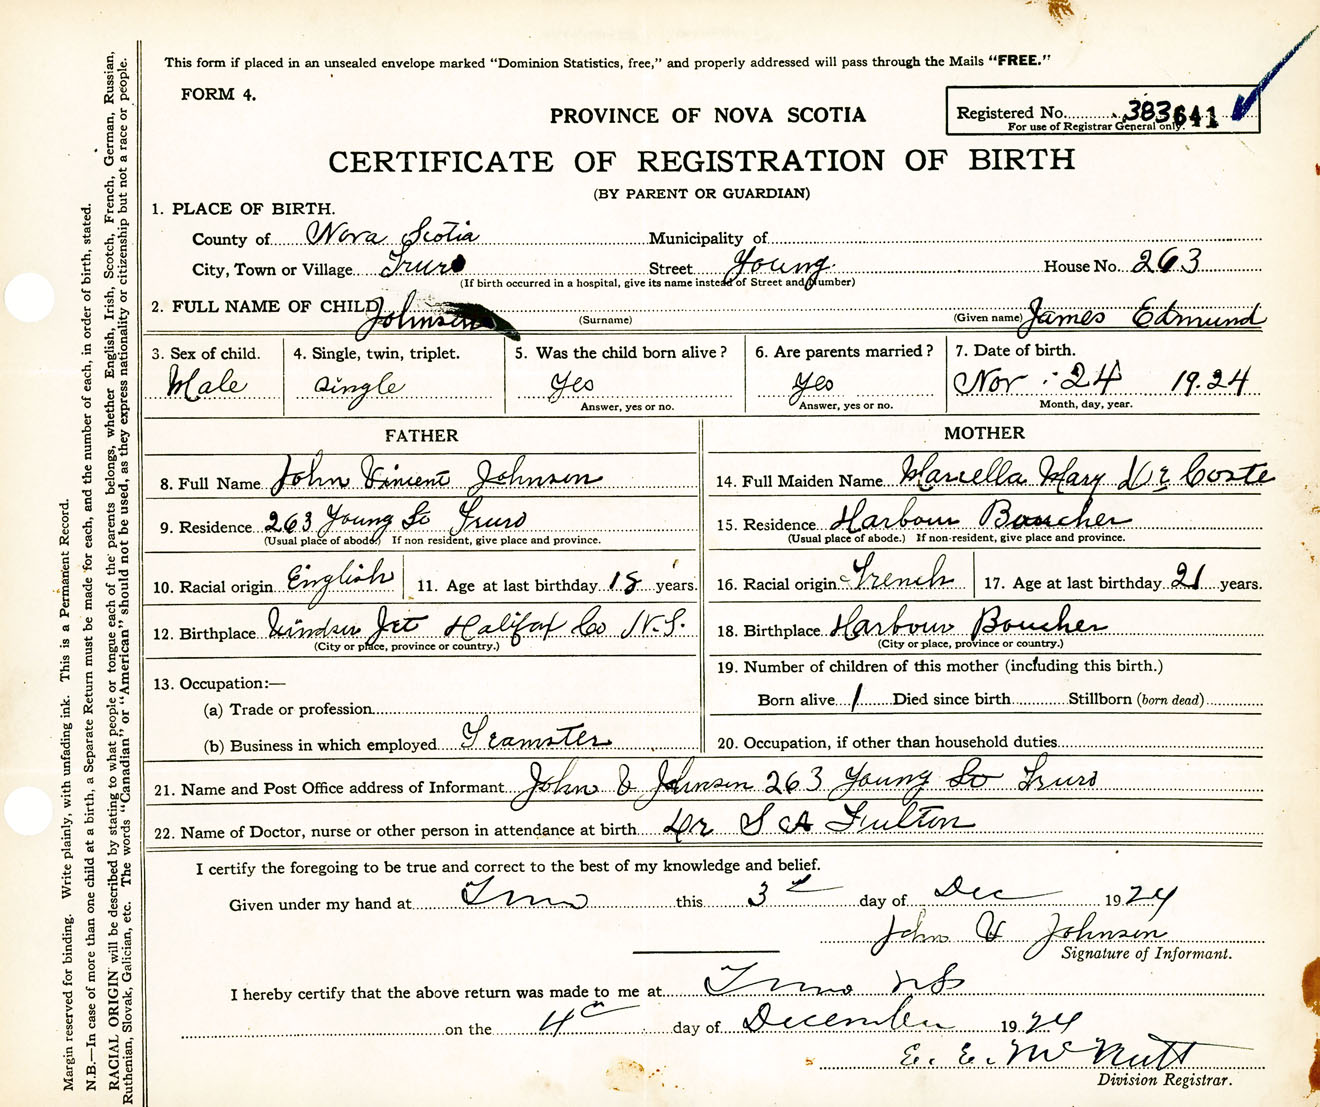 This form if placed in an unsealed envelope marked "Dominion Statistics, free," and properly addressed will pass through the Mails "FREE."
FORM 4.
PROVINCE OF NOVA SCOTIA
Registered No. 383641
For use of Registrar General only.
CERTIFICATE OF REGISTRATION OF BIRTH
(BY PARENT OR GUARDIAN)
1. PLACE OF BIRTH.
County of Nova Scotia Municipality of
City, Town or Village Truro Street Young House No. 263
(If birth occurred in a hospital, give its name instead of Street and Number)
2. FULL NAME OF CHILD Johnson (Surname) (Given name) James Edmund
3. Sex of child. 4. Single, twin, triplet. 5. Was the child born alive? 6. Are parents married? 7. Date of birth.
Male single Yes Yes Nov. 24 1924
Answer, yes or no. Answer, yes or no. Month, day, year.
FATHER MOTHER
8. Full Name John Vincent Johnson 14. Full Maiden Name Marcella Mary De Coste
9. Residence 263 Young St Truro 15. Residence Harbour Boucher
(Usual place of abode.) If non resident, give place and province. (Usual place of abode.) If non-resident, give place and province.
10. Racial origin English 11. Age at last birthday 18 years. 16. Racial origin French 17. Age at last birthday 21 years.
12. Birthplace Windsor Jct Halifax Co N.S. 18. Birthplace Harbour Boucher
(City or place, province or country.) (City or place, province or country.)
13. Occupation:— 19. Number of children of this mother (including this birth.)
(a) Trade or profession Born alive 1 Died since birth Stillborn (born dead)
(b) Business in which employed Teamster 20. Occupation, if other than household duties
21. Name and Post Office address of Informant John V Johnson 263 Young St Truro
22. Name of Doctor, nurse or other person in attendance at birth Dr S A Fulton
I certify the foregoing to be true and correct to the best of my knowledge and belief.
Given under my hand at Truro this 3rd day of Dec 1924
John V Johnson
Signature of Informant.
I hereby certify that the above return was made to me at Truro NS
on the 4th day of December 1924
E. E. McNutt
Division Registrar.
Margin reserved for binding. Write plainly, with unfading ink. This is a Permanent Record.
N.B.—In case of more than one child at a birth, a Separate Return must be made for each, and the number of each, in order of birth, stated.
RACIAL ORIGIN will be described by stating to what people or tongue each of the parents belongs, whether English, Irish, Scotch, French, German, Russian,
Ruthenian, Slovak, Galician, etc. The words "Canadian" or "American" should not be used, as they express nationality or citizenship but not a race or people.